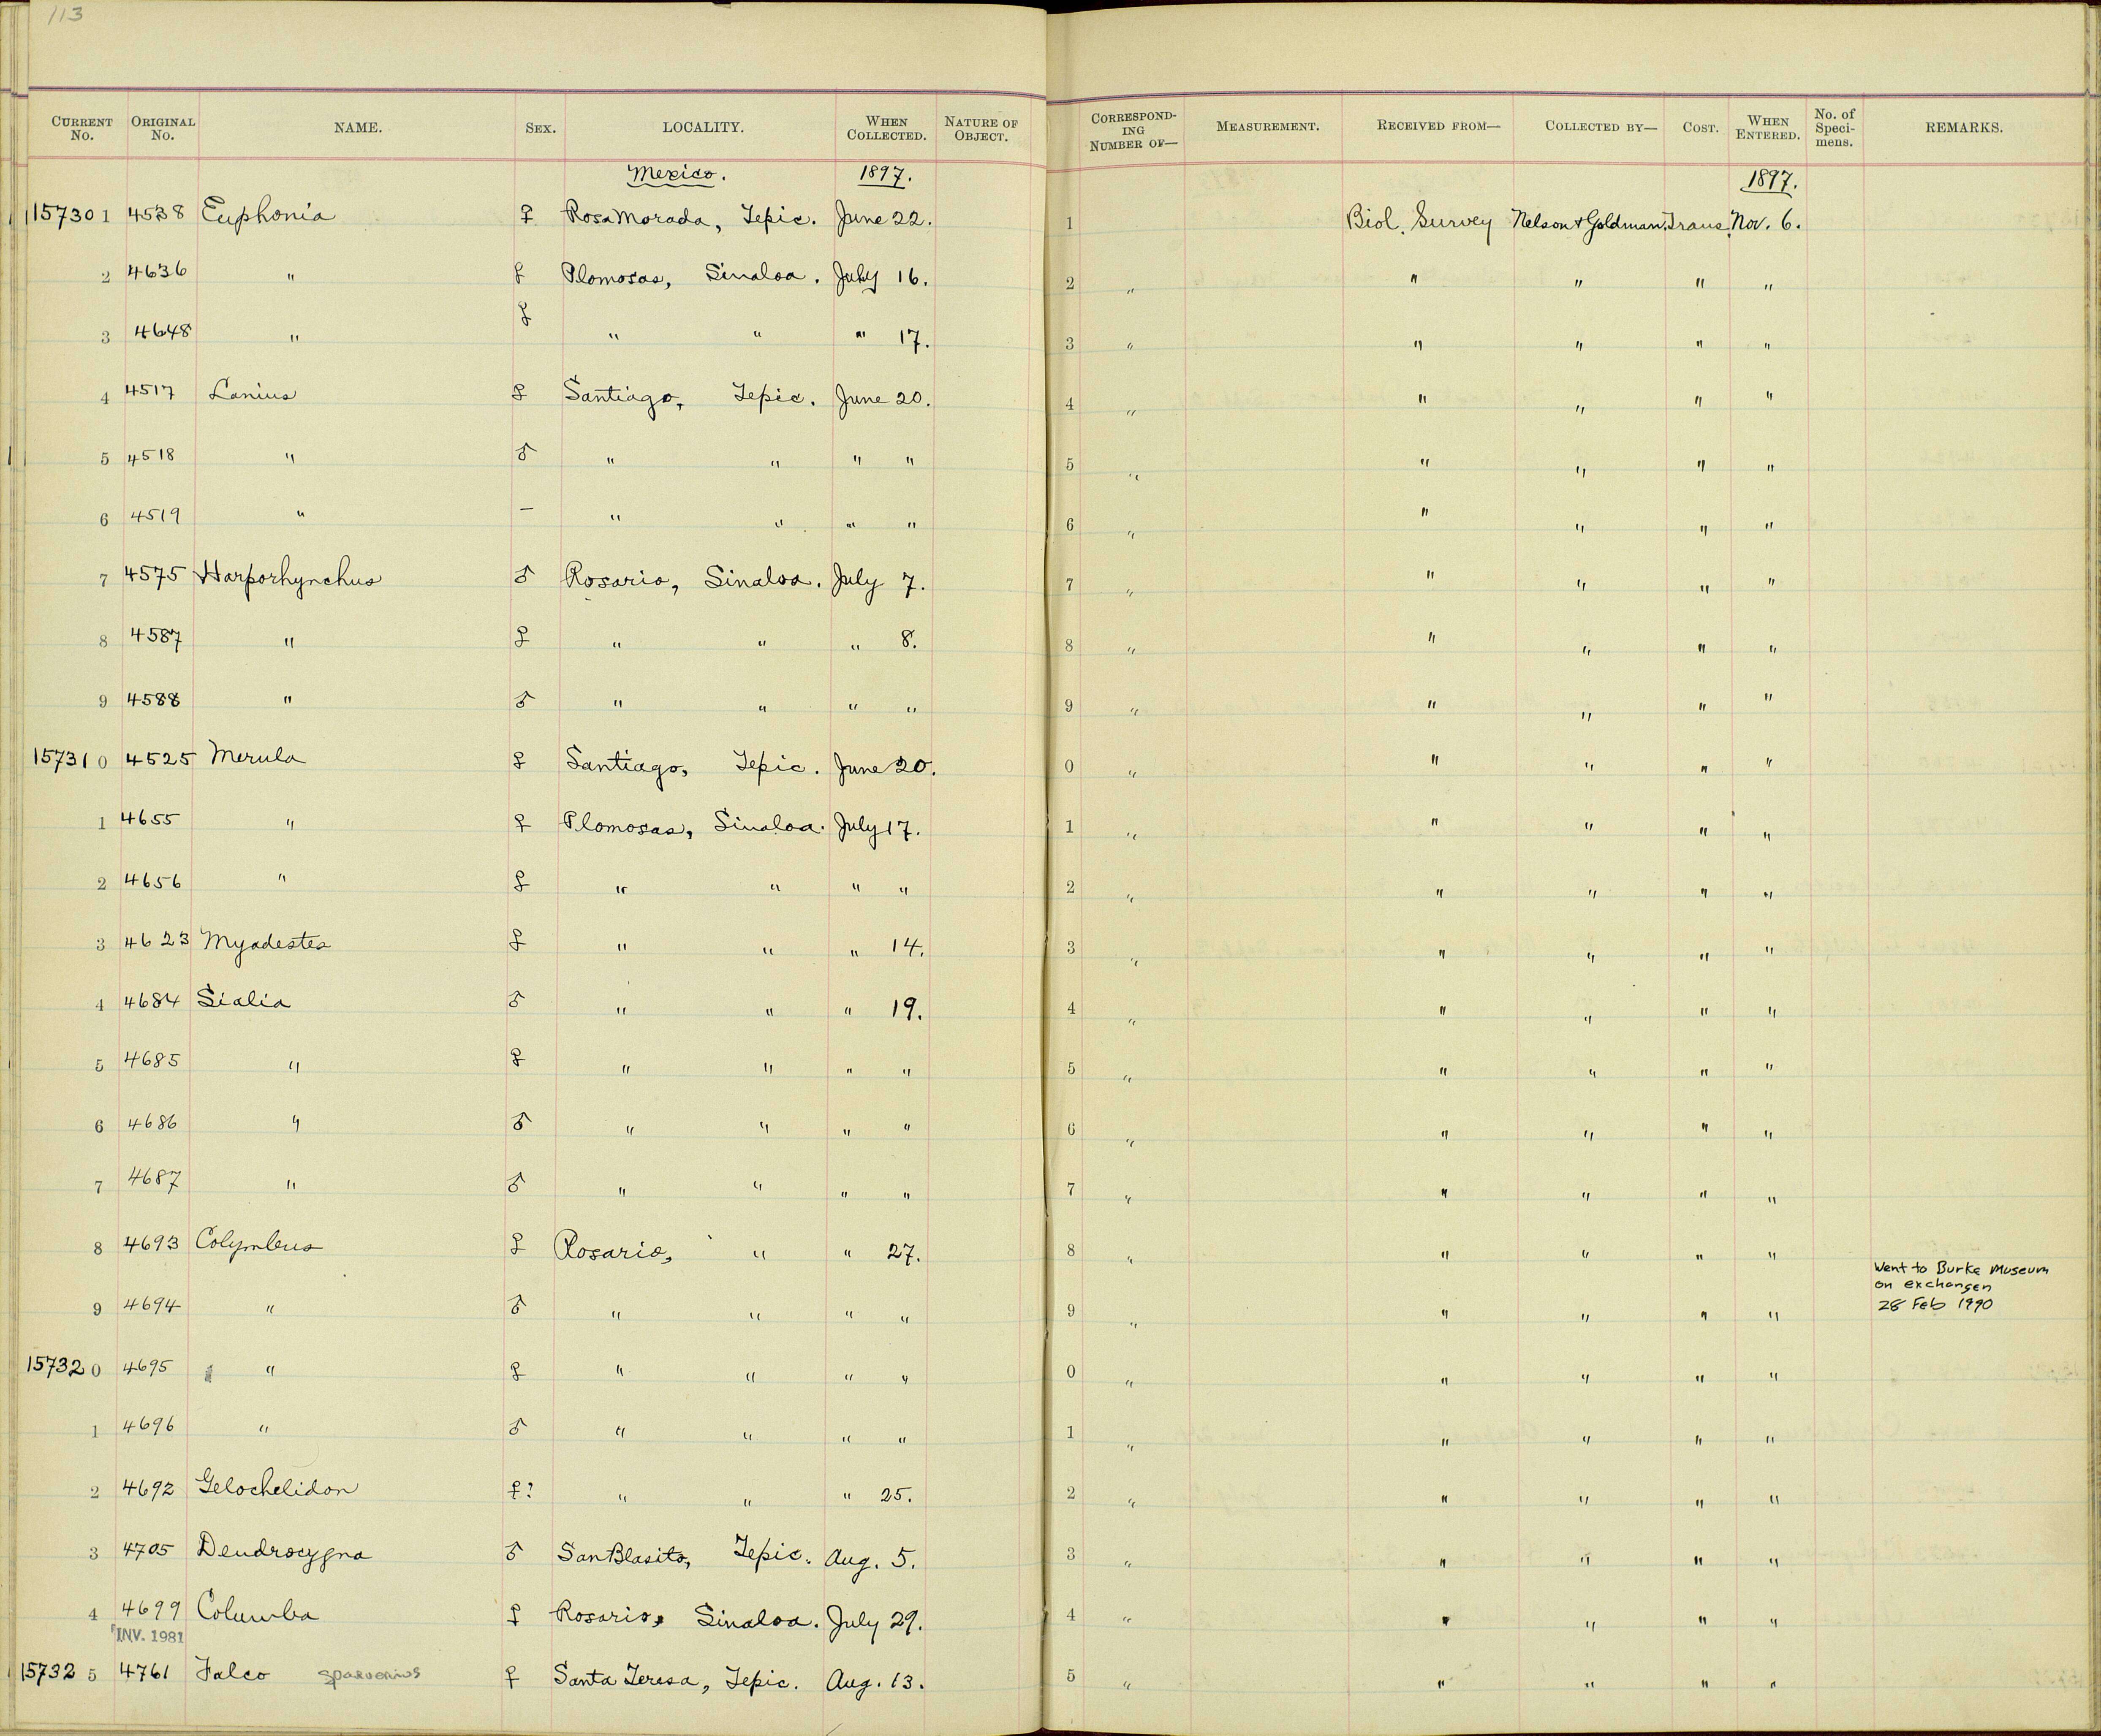 113
CURRENT No. ORIGINAL No. NAME. SEX. LOCALITY. WHEN COLLECTED. NATURE OF OBJECT. CORRESPONDING NUMBER OF— MEASUREMENT. RECEIVED FROM— COLLECTED BY— COST. WHEN ENTERED. No. of Specimens. REMARKS.
Mexico. 1897. 1897.
157301 4538 Euphonia ♀ Rosa Morada, Tepic. June 22. 1 Biol. Survey Nelson & Goldman. Trans. Nov. 6.
2 4636 " ♀ Plomosas, Sinaloa. July 16. 2 " " " " "
3 4648 " ♀ " " " 17. 3 " " " " "
4 4517 Lanius ♀ Santiago, Tepic. June 20. 4 " " " " "
5 4518 " ♂ " " " " 5 " " " " "
6 4519 " — " " " " 6 " " " " "
7 4575 Harporhynchus ♂ Rosario, Sinaloa. July 7. 7 " " " " "
8 4587 " ♀ " " " 8. 8 " " " " "
9 4588 " ♂ " " " " 9 " " " " "
157310 4525 Merula ♀ Santiago, Tepic. June 20. 0 " " " " "
1 4655 " ♀ Plomosas, Sinaloa. July 17. 1 " " " " "
2 4656 " ♀ " " " " 2 " " " " "
3 4623 Myadestes ♀ " " " 14. 3 " " " " "
4 4684 Sialia ♂ " " " 19. 4 " " " " "
5 4685 " ♀ " " " " 5 " " " " "
6 4686 " ♂ " " " " 6 " " " " "
7 4687 " ♂ " " " " 7 " " " " "
8 4693 Colymbus ♀ Rosario, " " 27. 8 " " " " "
Went to Burke Museum
on exchangen
28 Feb 1990
9 4694 " ♂ " " " " 9 " " " " "
157320 4695 " ♀ " " " " 0 " " " " "
1 4696 " ♂ " " " " 1 " " " " "
2 4692 Gelochelidon ♀? " " " 25. 2 " " " " "
3 4705 Dendrocygna ♂ San Blasito, Tepic. Aug. 5. 3 " " " " "
4 4699 Columba ♀ Rosario, Sinaloa. July 29. 4 " " " " "
INV. 1981
157325 4761 Falco sparverius ♀ Santa Teresa, Tepic. Aug. 13. 5 " " " " "